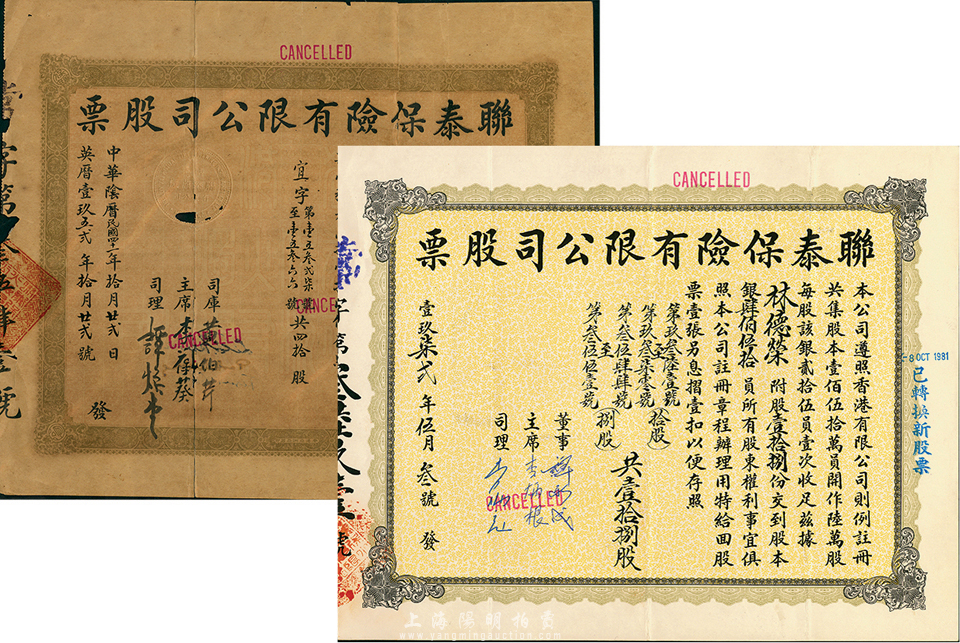 CANCELLED
聯泰保險有限公司股票
宜字第壹五叁弍柒號
至壹五叁六六號共四拾股
CANCELLED
司庫
主席
司理
CANCELLED
中華陰曆民國四一年拾月廿弍日
英曆壹玖五弍年拾月廿弍號
發
CANCELLED
聯泰保險有限公司股票
本公司遵照香港有限公司則例註冊
共集股本壹佰伍拾萬員開作陸萬股
每股該銀貳拾伍員壹次收足茲據
林德榮附股壹拾捌份交到股本
銀肆佰伍拾員所有股東權利事宜俱
照本公司註冊章程辦理用特給回股
票壹張另息摺壹扣以便存照
至
拾股
至
捌股
共壹拾捌股
董事
主席
司理
CANCELLED
壹玖柒弍年伍月叁號
發
8 OCT 1981
已轉換新股票
上海陽明拍賣
www.yangmingauction.com